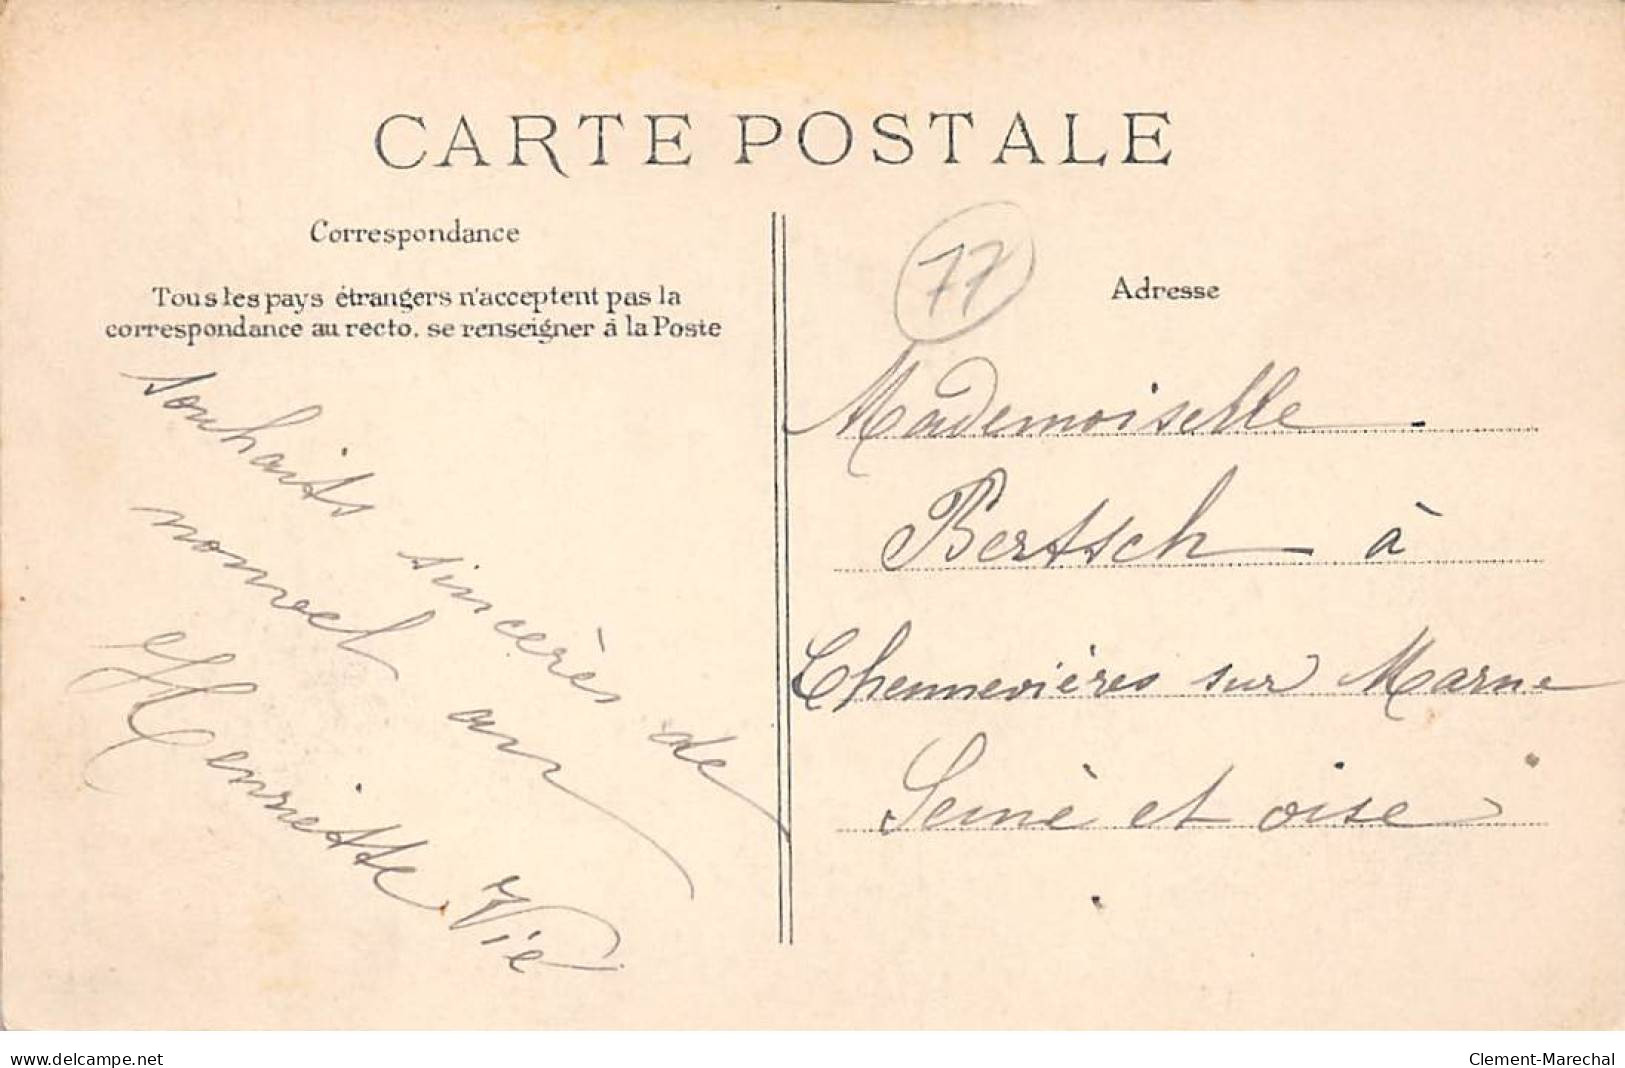 CARTE POSTALE
Correspondance
Tous les pays étrangers n'acceptent pas la
correspondance au recto, se renseigner à la Poste
souhaits sincères de
nouvel an
Henriette Vié
77
Adresse
Mademoiselle
Bertsch à
Chennevières sur Marne
Seine et oise
www.delcampe.net
Clement-Marechal